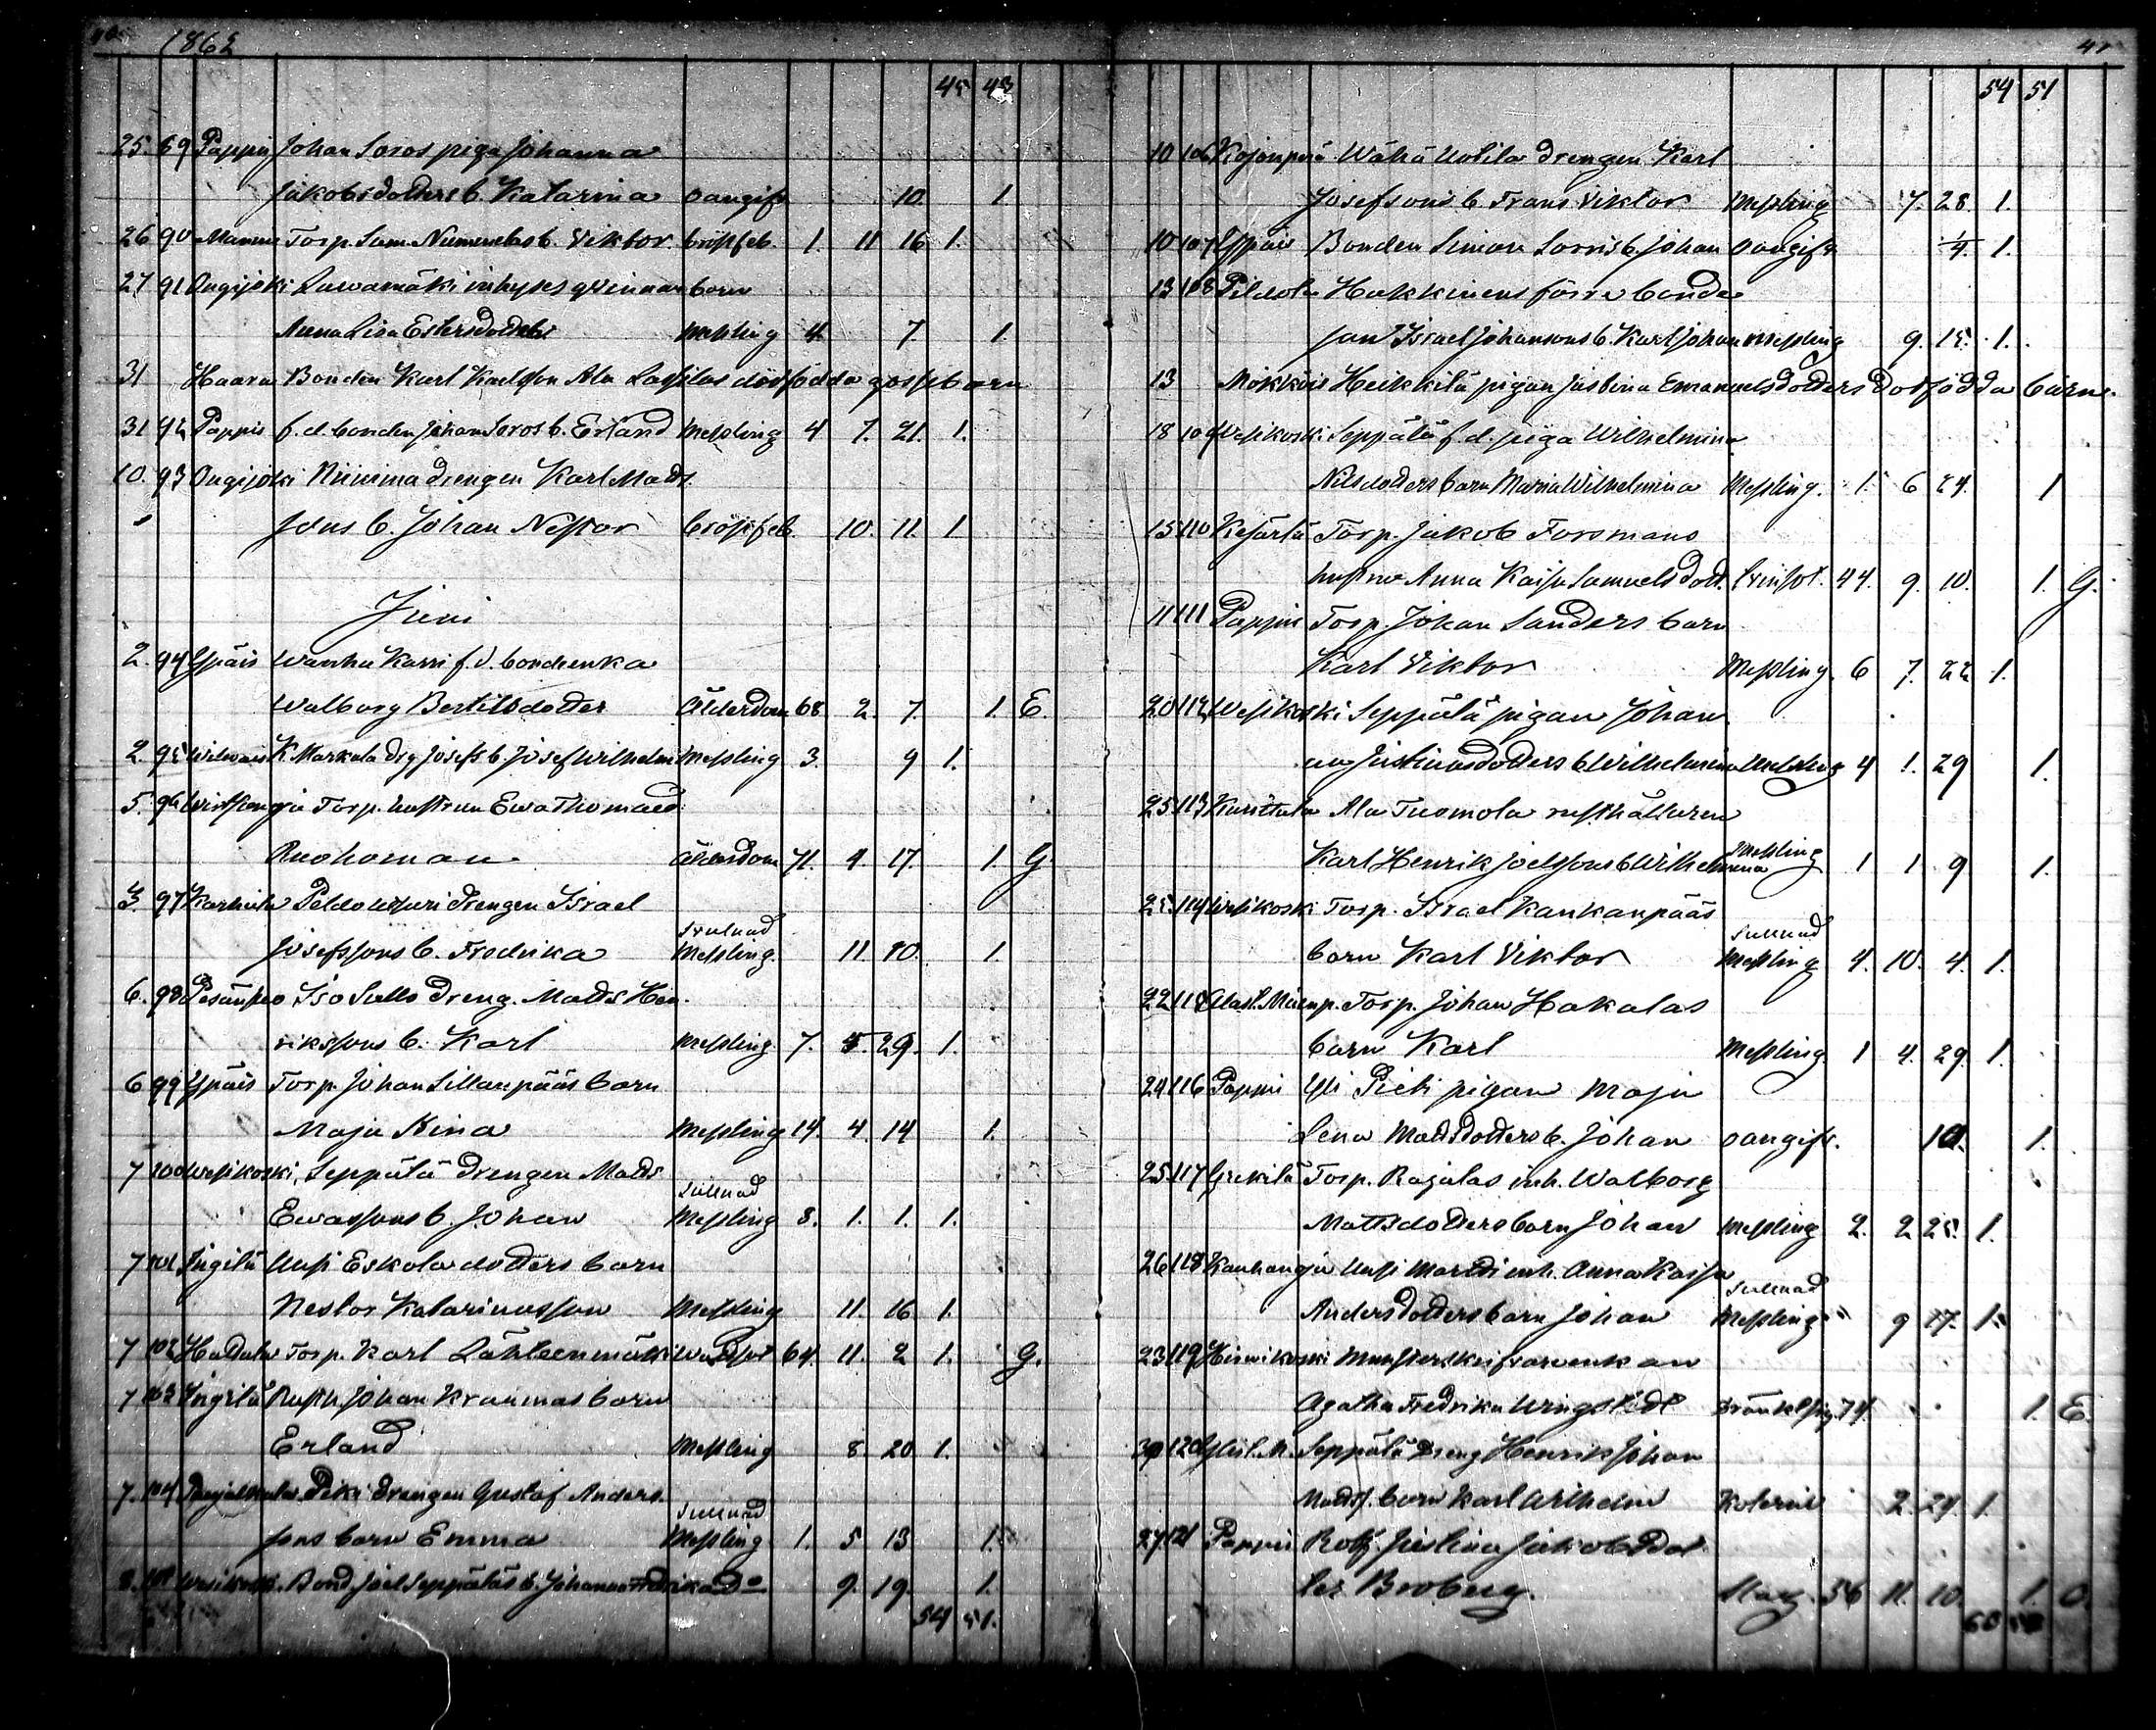 40 1862
45 43
25. 89 Pappis Johan Soros piga Johanna
Jakobsdotters b. Katarina oangift 10. 1
26 90 Mannis Torp. Sam. Nummelas b. Viktor. bröstfeb. 1. 11 16 1.
27 91 Ongijoki Luwamäki inhyses qvinnan barn
Anna Lisa Estersdotters Messling 4. 7. 1.
31 Haara Bonden Karl Karlsson Ala Lassilas dödfödda gossebarn
31 92 Pappis f. d. bonden Johan Soros b. Erland Messling 4 7. 21. 1.
10. 93 Ongijoki Niinima drengen Karl Matts
sons b. Johan Nestor bröstfeb. 10. 11. 1
Juni
2. 94 Ypäis Wanha Karri f. d. bondenka
Walborg Bertilsdotter Ålderdom 68 2. 7. 1. E.
2. 95 K. Markula drg Josefs b. Josef Wilhelm Messling 3. 9 1.
5. 96 Torp. hustrun Ewa Thomasd.
Ruohoman Ålderdom 71. 4. 17. 1. G
3. 97 drengen Israel
Josefssons b. Fredrika Messling. 11 10. 1.
6. 98 Iso Sallo dreng. Matts Hen-
rikssons b. Karl Messling. 7. 5. 29. 1.
6 99 Ypäis Torp. Johan Sillanpääs barn
Maja Stina Messling 14. 4. 14 1.
7 100 Wesikoski. Seppälä drengen Matts
Ewassons b. Johan Messling 8. 1. 1. 1.
7 101 Ingilä Uusi Eskola dotters barn
Nestor Katarinasson Messling 11. 16 1.
7 102 Torp. Karl Lähteenmäki Wattsot 64. 11. 2 1. G.
7 103 Ingilä Rusth Johan Kraumas barn
Erland Messling 8 20 1.
7. 104 Piki drengen Gustaf Anders-
sons barn Emma Messling 1. 5 13 1.
8. 105 Wesikoski. Bond. Joel Seppäläs b. Johanna Fredrika do 9. 19. 1.
54 51.
41
54 51
10 106 Kojonperä Wähä Uotila drengen Karl
Josefsons b. Frans Viktor Messling 7. 28. 1.
10 107 Ypäis Bonden Simon Sorris b. Johan oangift 1/4. 1.
13 108 Hukkinens förra bonde
Israel Johansons b. Karl Johan Messling 9. 15. 1.
13 Mökköis Heikkilä pigan Justina Emanuelsdotters dödfödda barn.
18 109 Wesikoski. Seppälä f. d. piga Wilhelmina
Nilsdotters barn Maria Wilhelmina Messling. 1. 6 24. 1
15 110 Kejärlä Torp. Jakob Forsmans
hustru Anna Kaisa Samuels dott. 44. 9. 10. 1. G.
11 111 Pappis Torp. Johan Sanders barn
Karl Viktor Messling. 6 7. 22 1.
20 112 Wesikoski Seppälä pigan Johan
na Justinasdotters b Wilhelmina Messling 4 1. 29 1.
25 113 Ala Tuomola rusthållaren
Karl Henrik Joelssons b Wilhelmina Messling 1 1 9 1.
25. 114 Wesikoski Torp. Israel Kankanpääs
barn Karl Viktor Messling 4. 10. 4. 1.
22 115 Torp. Johan Hakalas
barn Karl Messling. 1 4. 29. 1.
24 116 Pappis Yli Pieti pigan Maja
Lena Mattsdotters b. Johan oangift. 10. 1.
25 117 Torp. Rajalas inh. Walborg
Mattsdotters barn Johan Messling 2. 2 25. 1.
26 118 Kauhanoja Uusi Martti inh. Anna Kaisa
Andersdotters barn Johan Messling 9 17. 1.
23 119 Munsterskrifvarenkan
Agatha Fredrika Wringstedt 74. 1. E.
30 120 Seppälä dreng Henrik Johan
Matts. barn Karl Wilhelm Kolerin 2. 24. 1.
27 121 Pappis Rotf. Justina Jakobsdot
ter Broberg. Mag. 56 11. 10. 1. O.
60